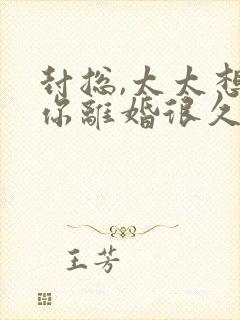 封总,太太想
你离婚很久
王芳